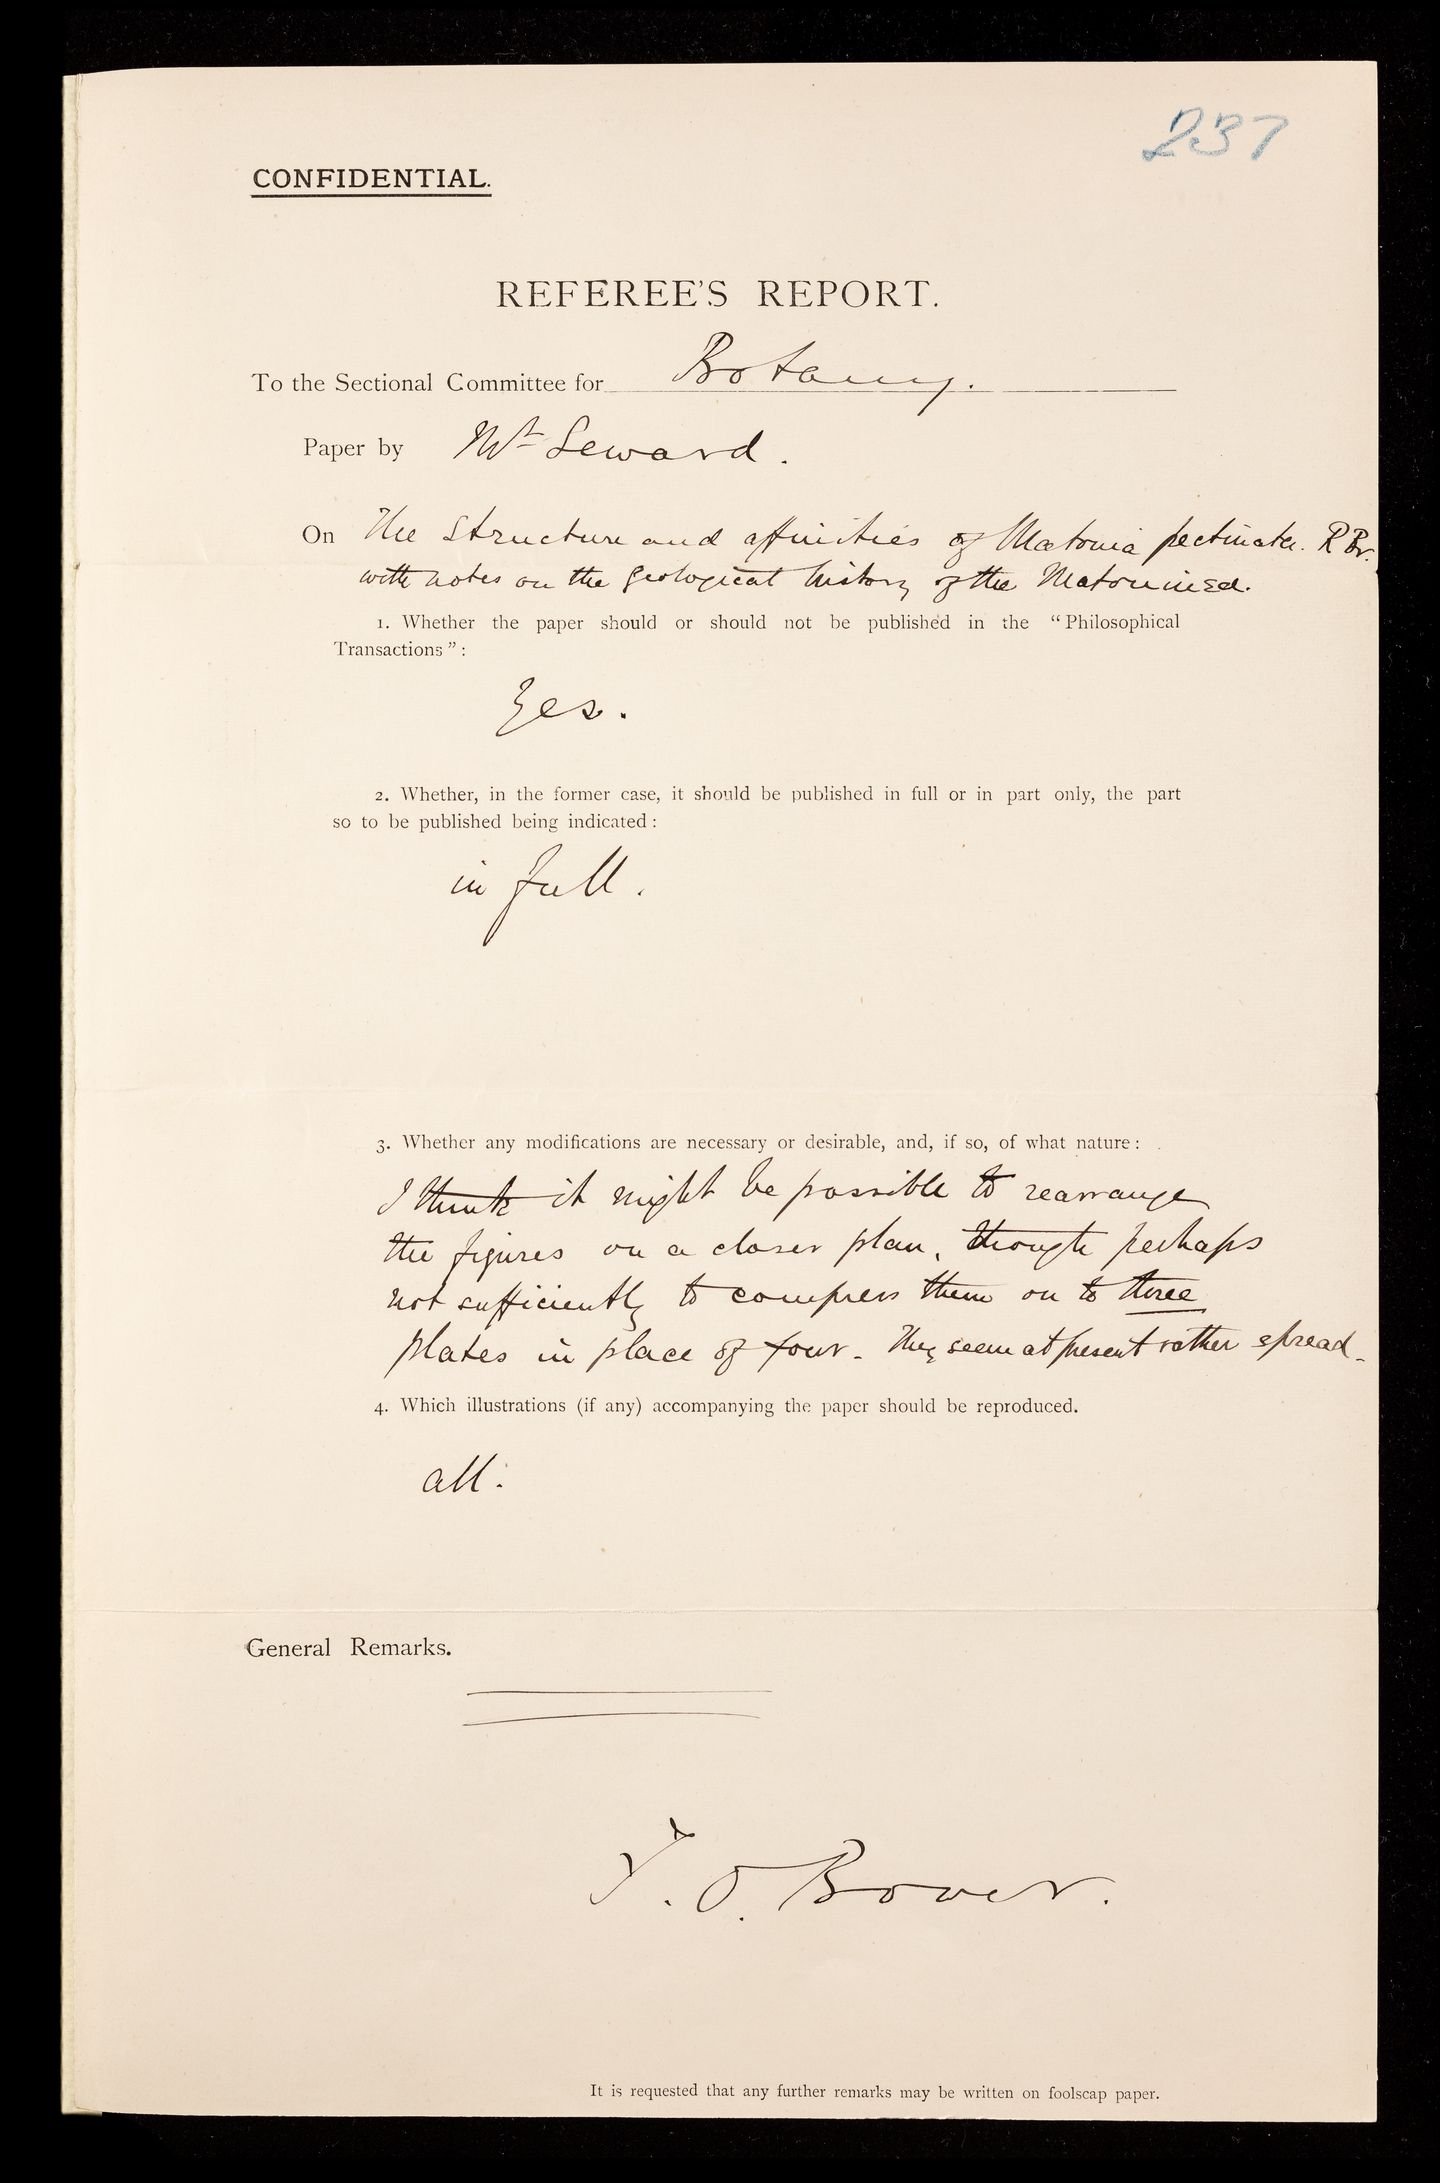 237
CONFIDENTIAL.
REFEREE'S REPORT.
To the Sectional Committee for Botany.
Paper by Mr Seward.
On The Structure and affinities of Matonia pectinata. R Br.
with notes on the geological history of the Matonineæ.
1. Whether the paper should or should not be published in the "Philosophical
Transactions":
Yes.
2. Whether, in the former case, it should be published in full or in part only, the part
so to be published being indicated:
in full.
3. Whether any modifications are necessary or desirable, and, if so, of what nature:
I think it might be possible to rearrange
the figures on a closer plan, though perhaps
not sufficiently to compress them on to three
plates in place of four. They seem at present rather spread.
4. Which illustrations (if any) accompanying the paper should be reproduced.
all.
General Remarks.
F. O. Bower.
It is requested that any further remarks may be written on foolscap paper.